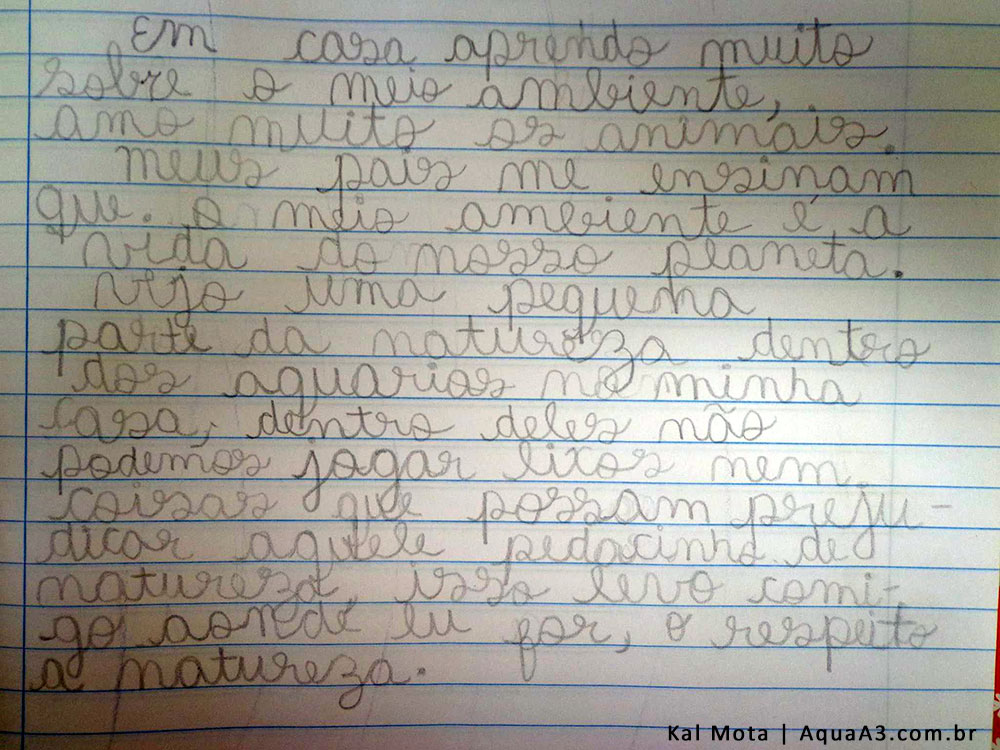 Em casa aprendo muito
sobre o meio ambiente,
amo muito os animais.
Meus pais me ensinam
que o meio ambiente é a
vida do nosso planeta.
Vejo uma pequena
parte da natureza dentro
dos aquarios na minha
casa, dentro deles não
podemos jogar lixos nem
coisas que possam preju-
dicar aquele pedacinho de
natureza, isso levo comi-
go aonde eu for, o respeito
a natureza.
Kal Mota | AquaA3.com.br